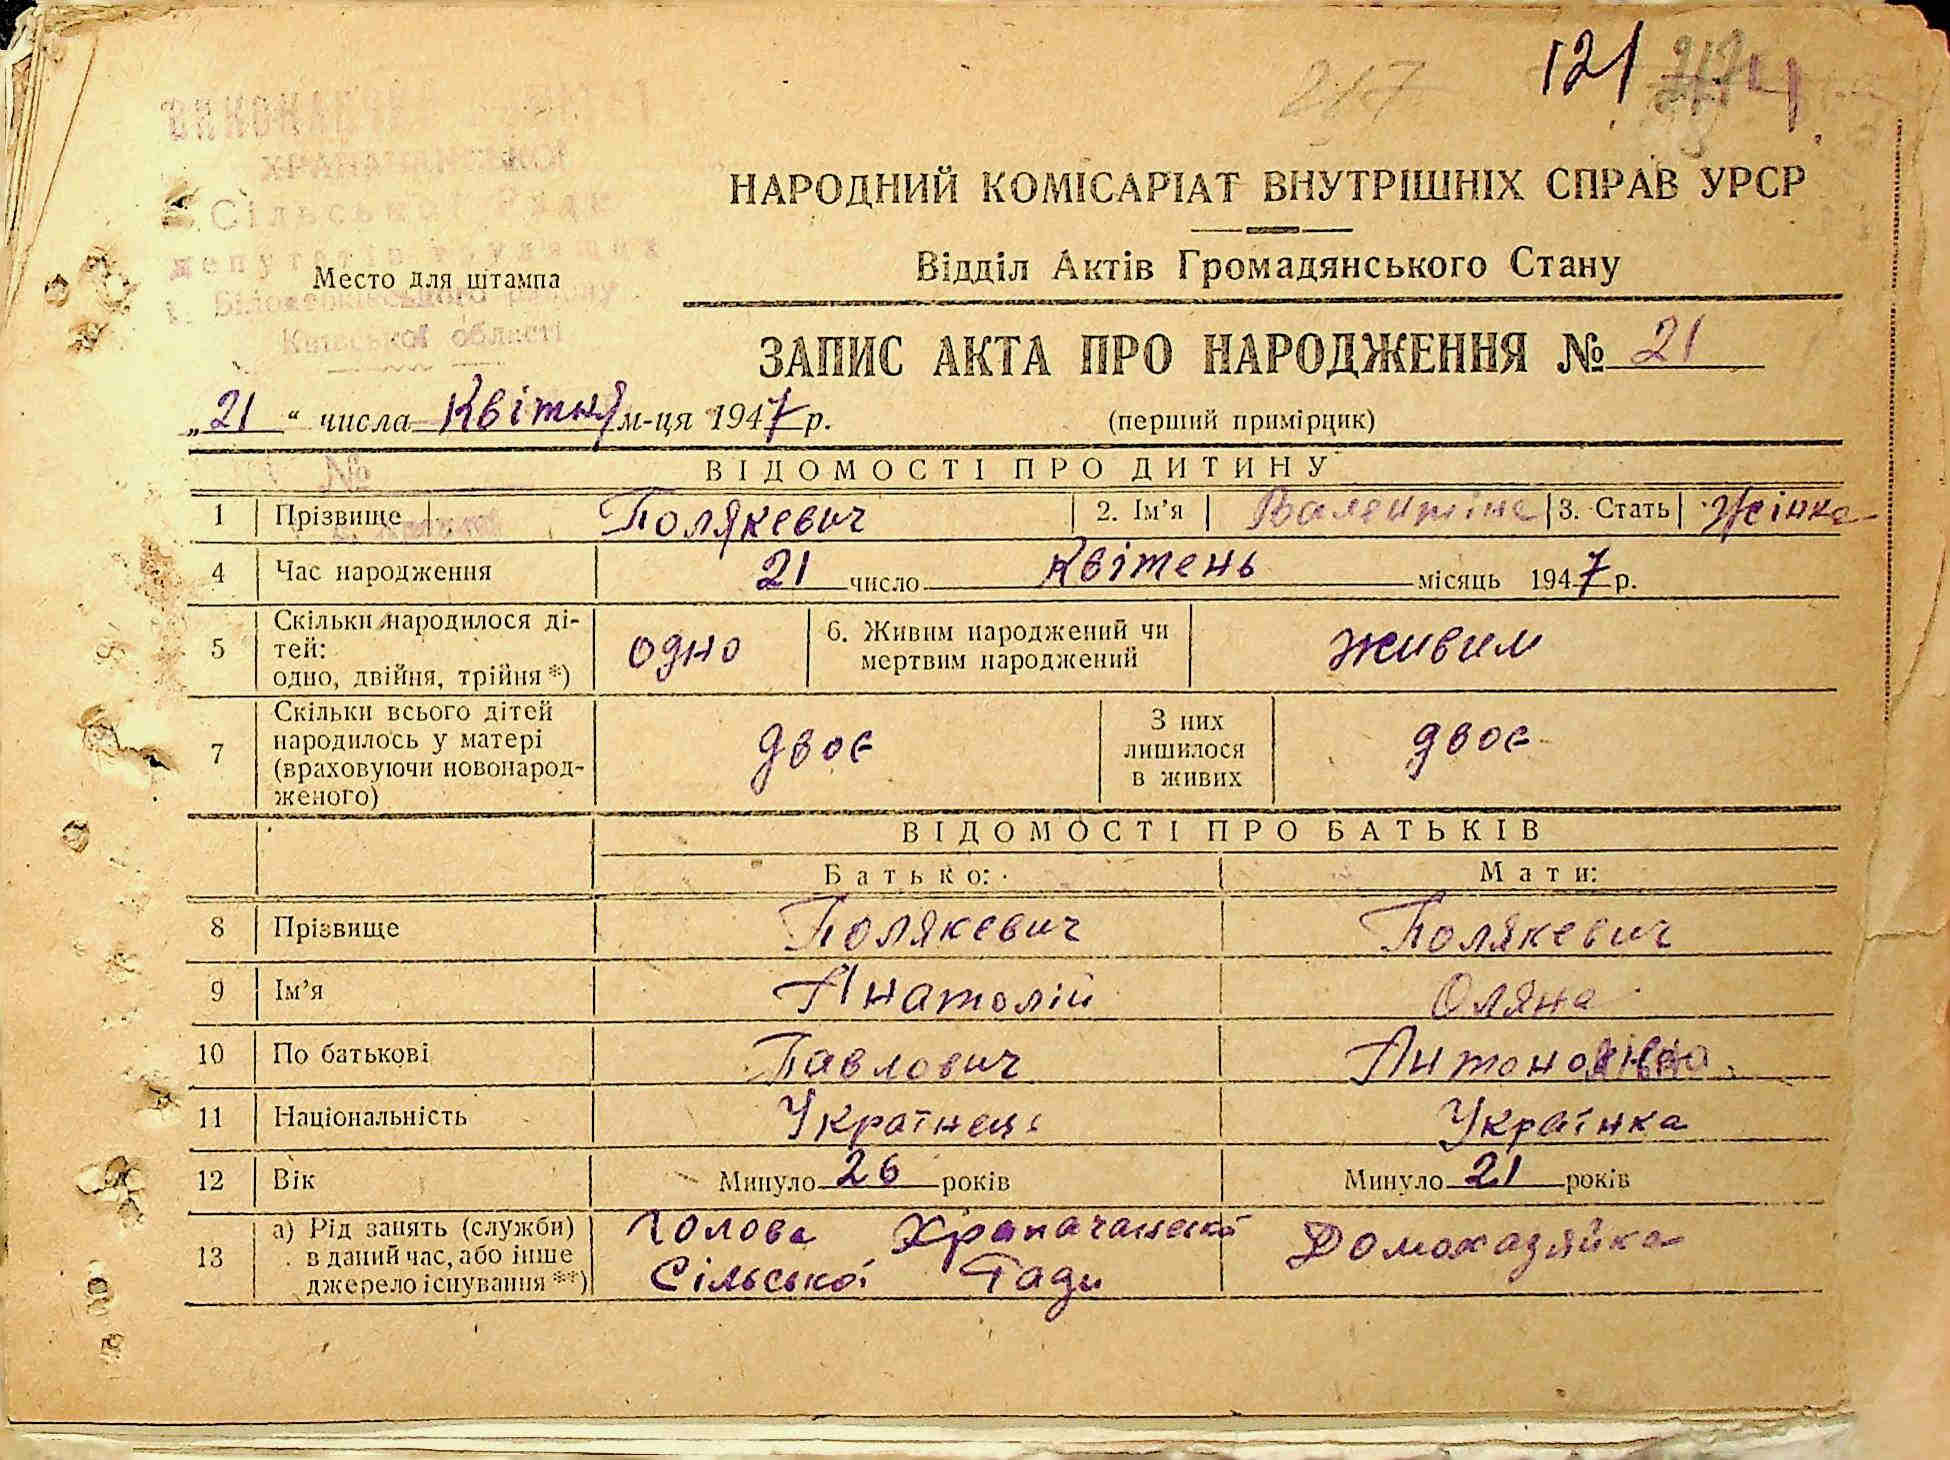 217 121
ХРАПАЧАНСЬКОЇ
Сільської Ради
депутатів трудящих
Білоцерківського району
Київської області
НАРОДНИЙ КОМІСАРІАТ ВНУТРІШНІХ СПРАВ УРСР
Відділ Актів Громадянського Стану
Место для штампа
ЗАПИС АКТА ПРО НАРОДЖЕННЯ № 21
„21“ числа Квітня м-ця 1947 р. (перший примірник)
№
ВІДОМОСТІ ПРО ДИТИНУ
1 Прізвище Полякевич 2. Ім'я Валентіна 3. Стать Жінка
4 Час народження 21 число Квітень місяць 1947 р.
5 Скільки народилося ді-
тей:
одно, двійня, трійня*) одно 6. Живим народжений чи
мертвим народжений живим
7 Скільки всього дітей
народилось у матері
(враховуючи новонарод-
женого) двоє З них
лишилося
в живих двоє
ВІДОМОСТІ ПРО БАТЬКІВ
Батько: Мати:
8 Прізвище Полякевич Полякевич
9 Ім'я Анатолій Оляна
10 По батькові Павлович
11 Національність Українець Українка
12 Вік Минуло 26 років Минуло 21 років
13 а) Рід занять (служби)
в даний час, або інше
джерело існування**) Голова Храпачанської
Сільської Ради Домохазяйка